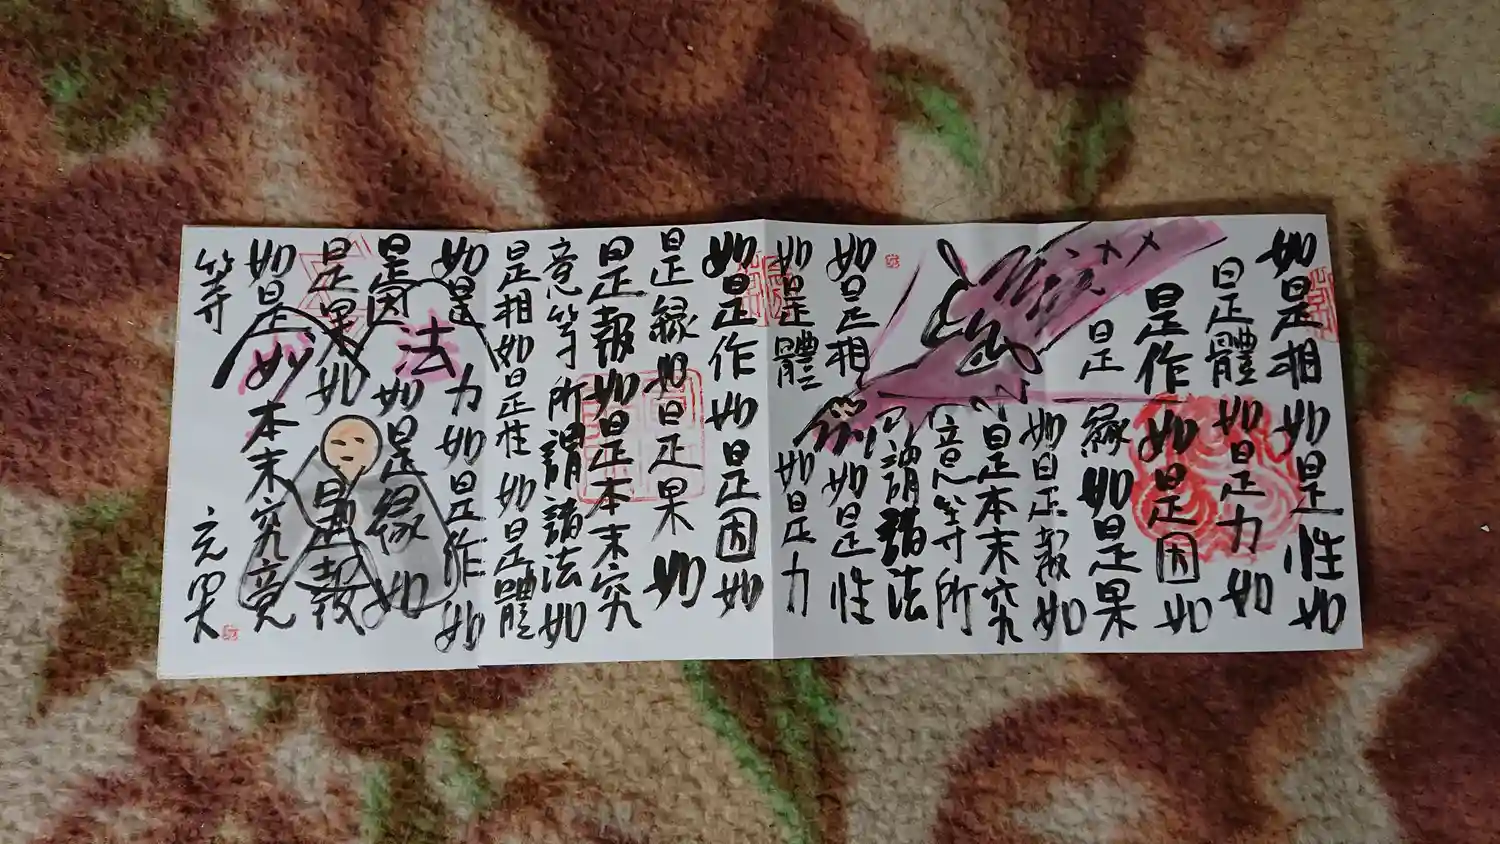 如是相如是性如
是體如是力如
是作如是因如
是緣如是果
如是報如
是本末究
竟等所
謂諸法
如是相如是性
如是體如是力
如是作如是因如
是緣如是果如
是報如是本末究
竟等所謂諸法如
是相如是性如是體
如是力如是作如
是因如是緣如
是果如是報
如是本末究竟
等
妙法